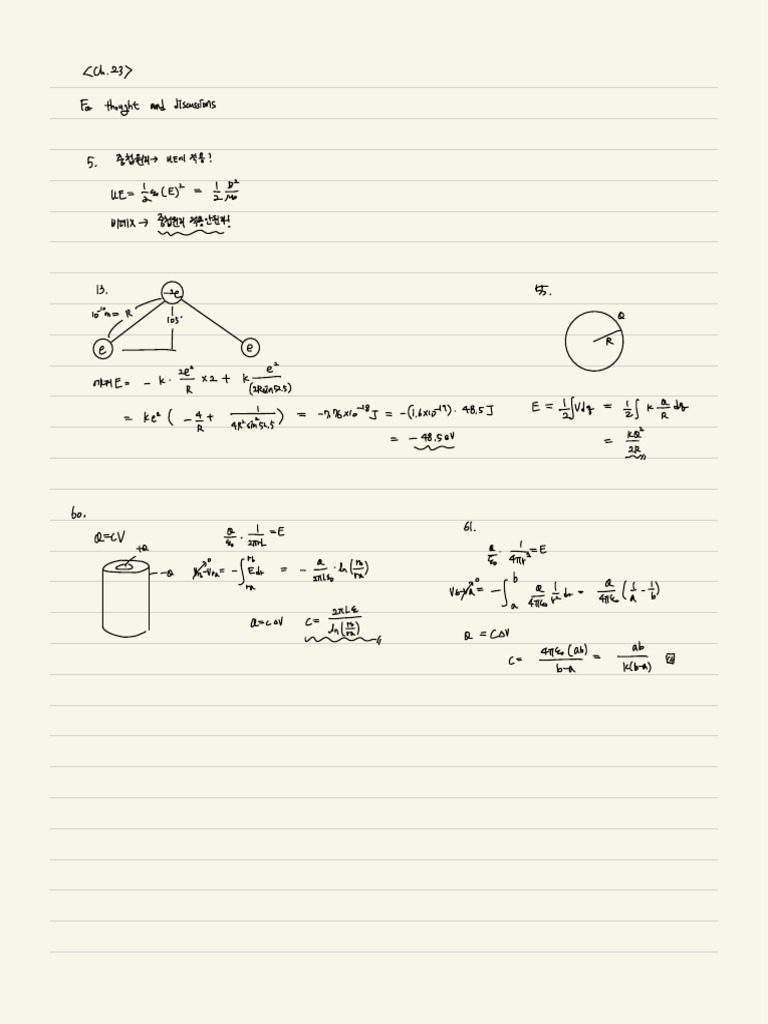 <Ch.23>
For thought and discussions
5. 중첩원리 → UE에 적용!
UE = 1/2 ε0 (E)² = 1/2 B²/μ0
→ 중첩원리 적용안된다!
13.
-2e
10⁻¹⁰m = R
105°
e
e
E = -k · 2e²/R × 2 + k e²/(2R sin52.5)
= ke² ( -4/R + 1/(4R² sin²52.5) ) = -7.76×10⁻¹⁸ J = -(1.6×10⁻¹⁹) · 48.5 J
= -48.5 eV
55.
Q
R
E = 1/2 ∫Vdq = 1/2 ∫ k Q/R dq
= kQ²/2R
60.
Q=CV
+Q
-Q
Q/ε0 · 1/2πrL = E
Vrb - Vra = -∫ra→rb E dr = - Q/2πLε0 · ln(rb/ra)
Q=CΔV C = 2πLε/ln(rb/ra)
61.
Q/ε0 · 1/4πr² = E
Vb-Va = -∫a→b Q/4πε0 1/r² dr = Q/4πε0 (1/a - 1/b)
Q = CΔV
C = 4πε0(ab)/b-a = ab/k(b-a)